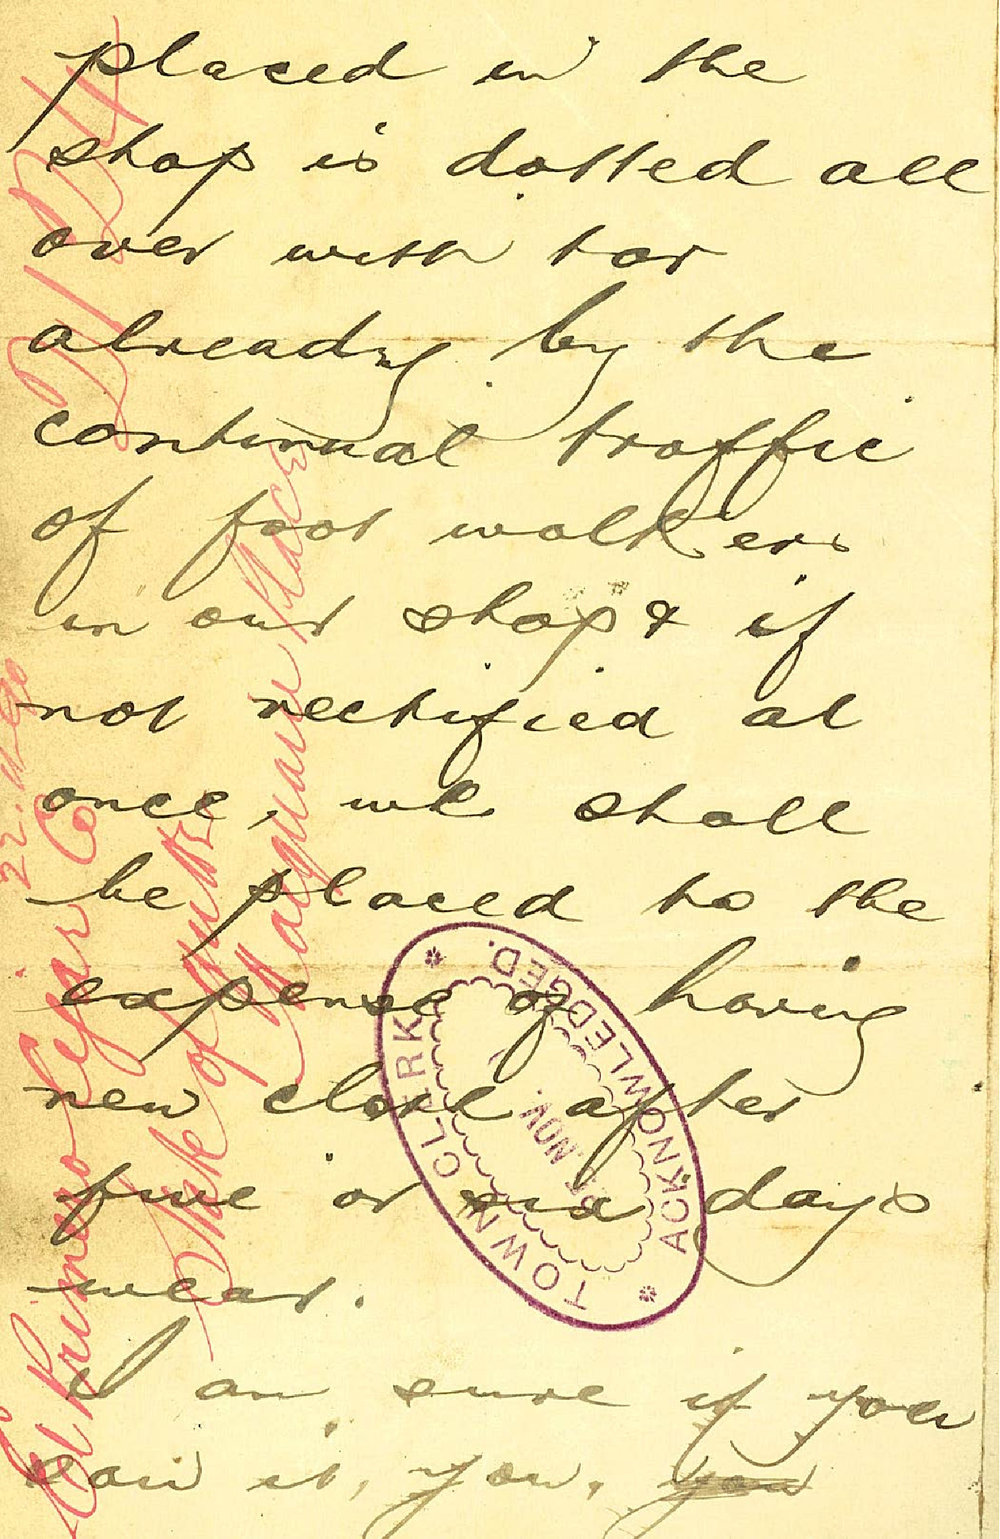 placed in the
shop is dotted all
over with tar
already by the
continual traffic
of foot walkers
in our shop & if
not rectified at
once, we shall
be placed to the
expense of having
new cloth after
five or six days
wear.
I am sure if you
saw it, you, you
TOWN CLERK
ACKNOWLEDGED.
NOV.
El Primero Cigar Co
22.11.90
State of
Macquarie Place